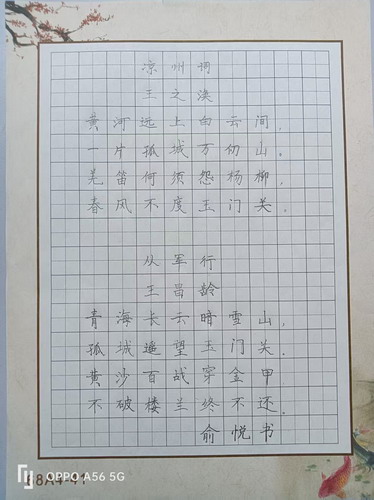 凉州词
王之涣
黄河远上白云间,
一片孤城万仞山.
羌笛何须怨杨柳,
春风不度玉门关.
从军行
王昌龄
青海长云暗雪山,
孤城遥望玉门关.
黄沙百战穿金甲
不破楼兰终不还.
俞悦书
OPPO A56 5G